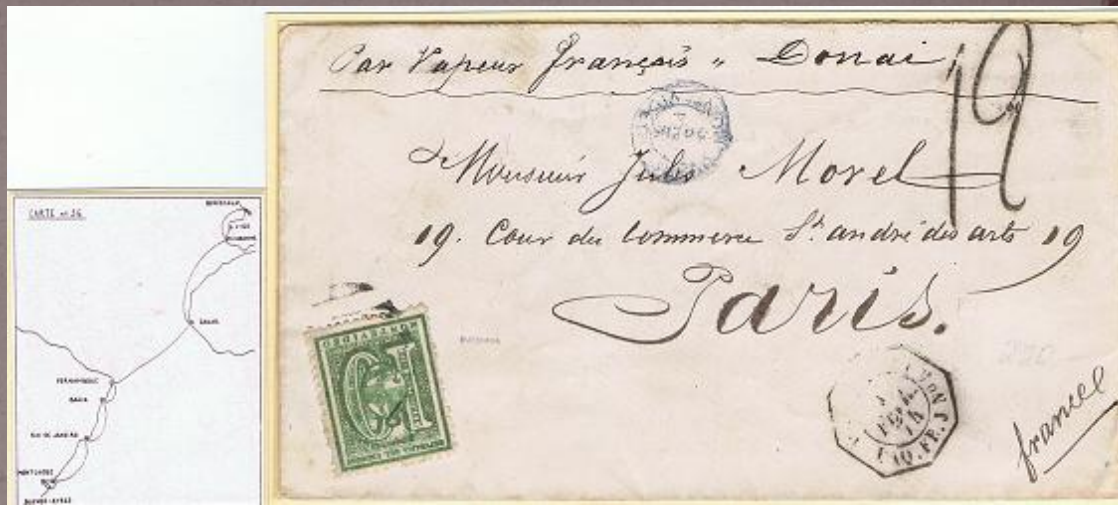 Par Vapeur français " Donai
12
Monsieur Jules Morel
19. Cour du Commerce St. andré des arts 19
Paris.
france
FEVR.
PAQ. FR. J
MONTEVIDEO
CARTE nº 26
BORDEAUX
DAKAR
PERNAMBUCO
BAHIA
RIO DE JANEIRO
MONTEVIDEO
BUENOS-AYRES